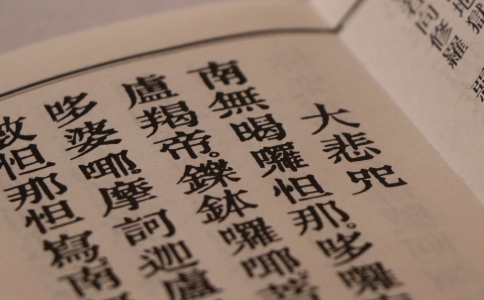 地獄
向修羅 惡
大悲咒
南無喝囉怛那。哆囉
盧羯帝。鑠鉢囉耶
哆婆㖿。摩訶迦盧
怛那怛寫。南